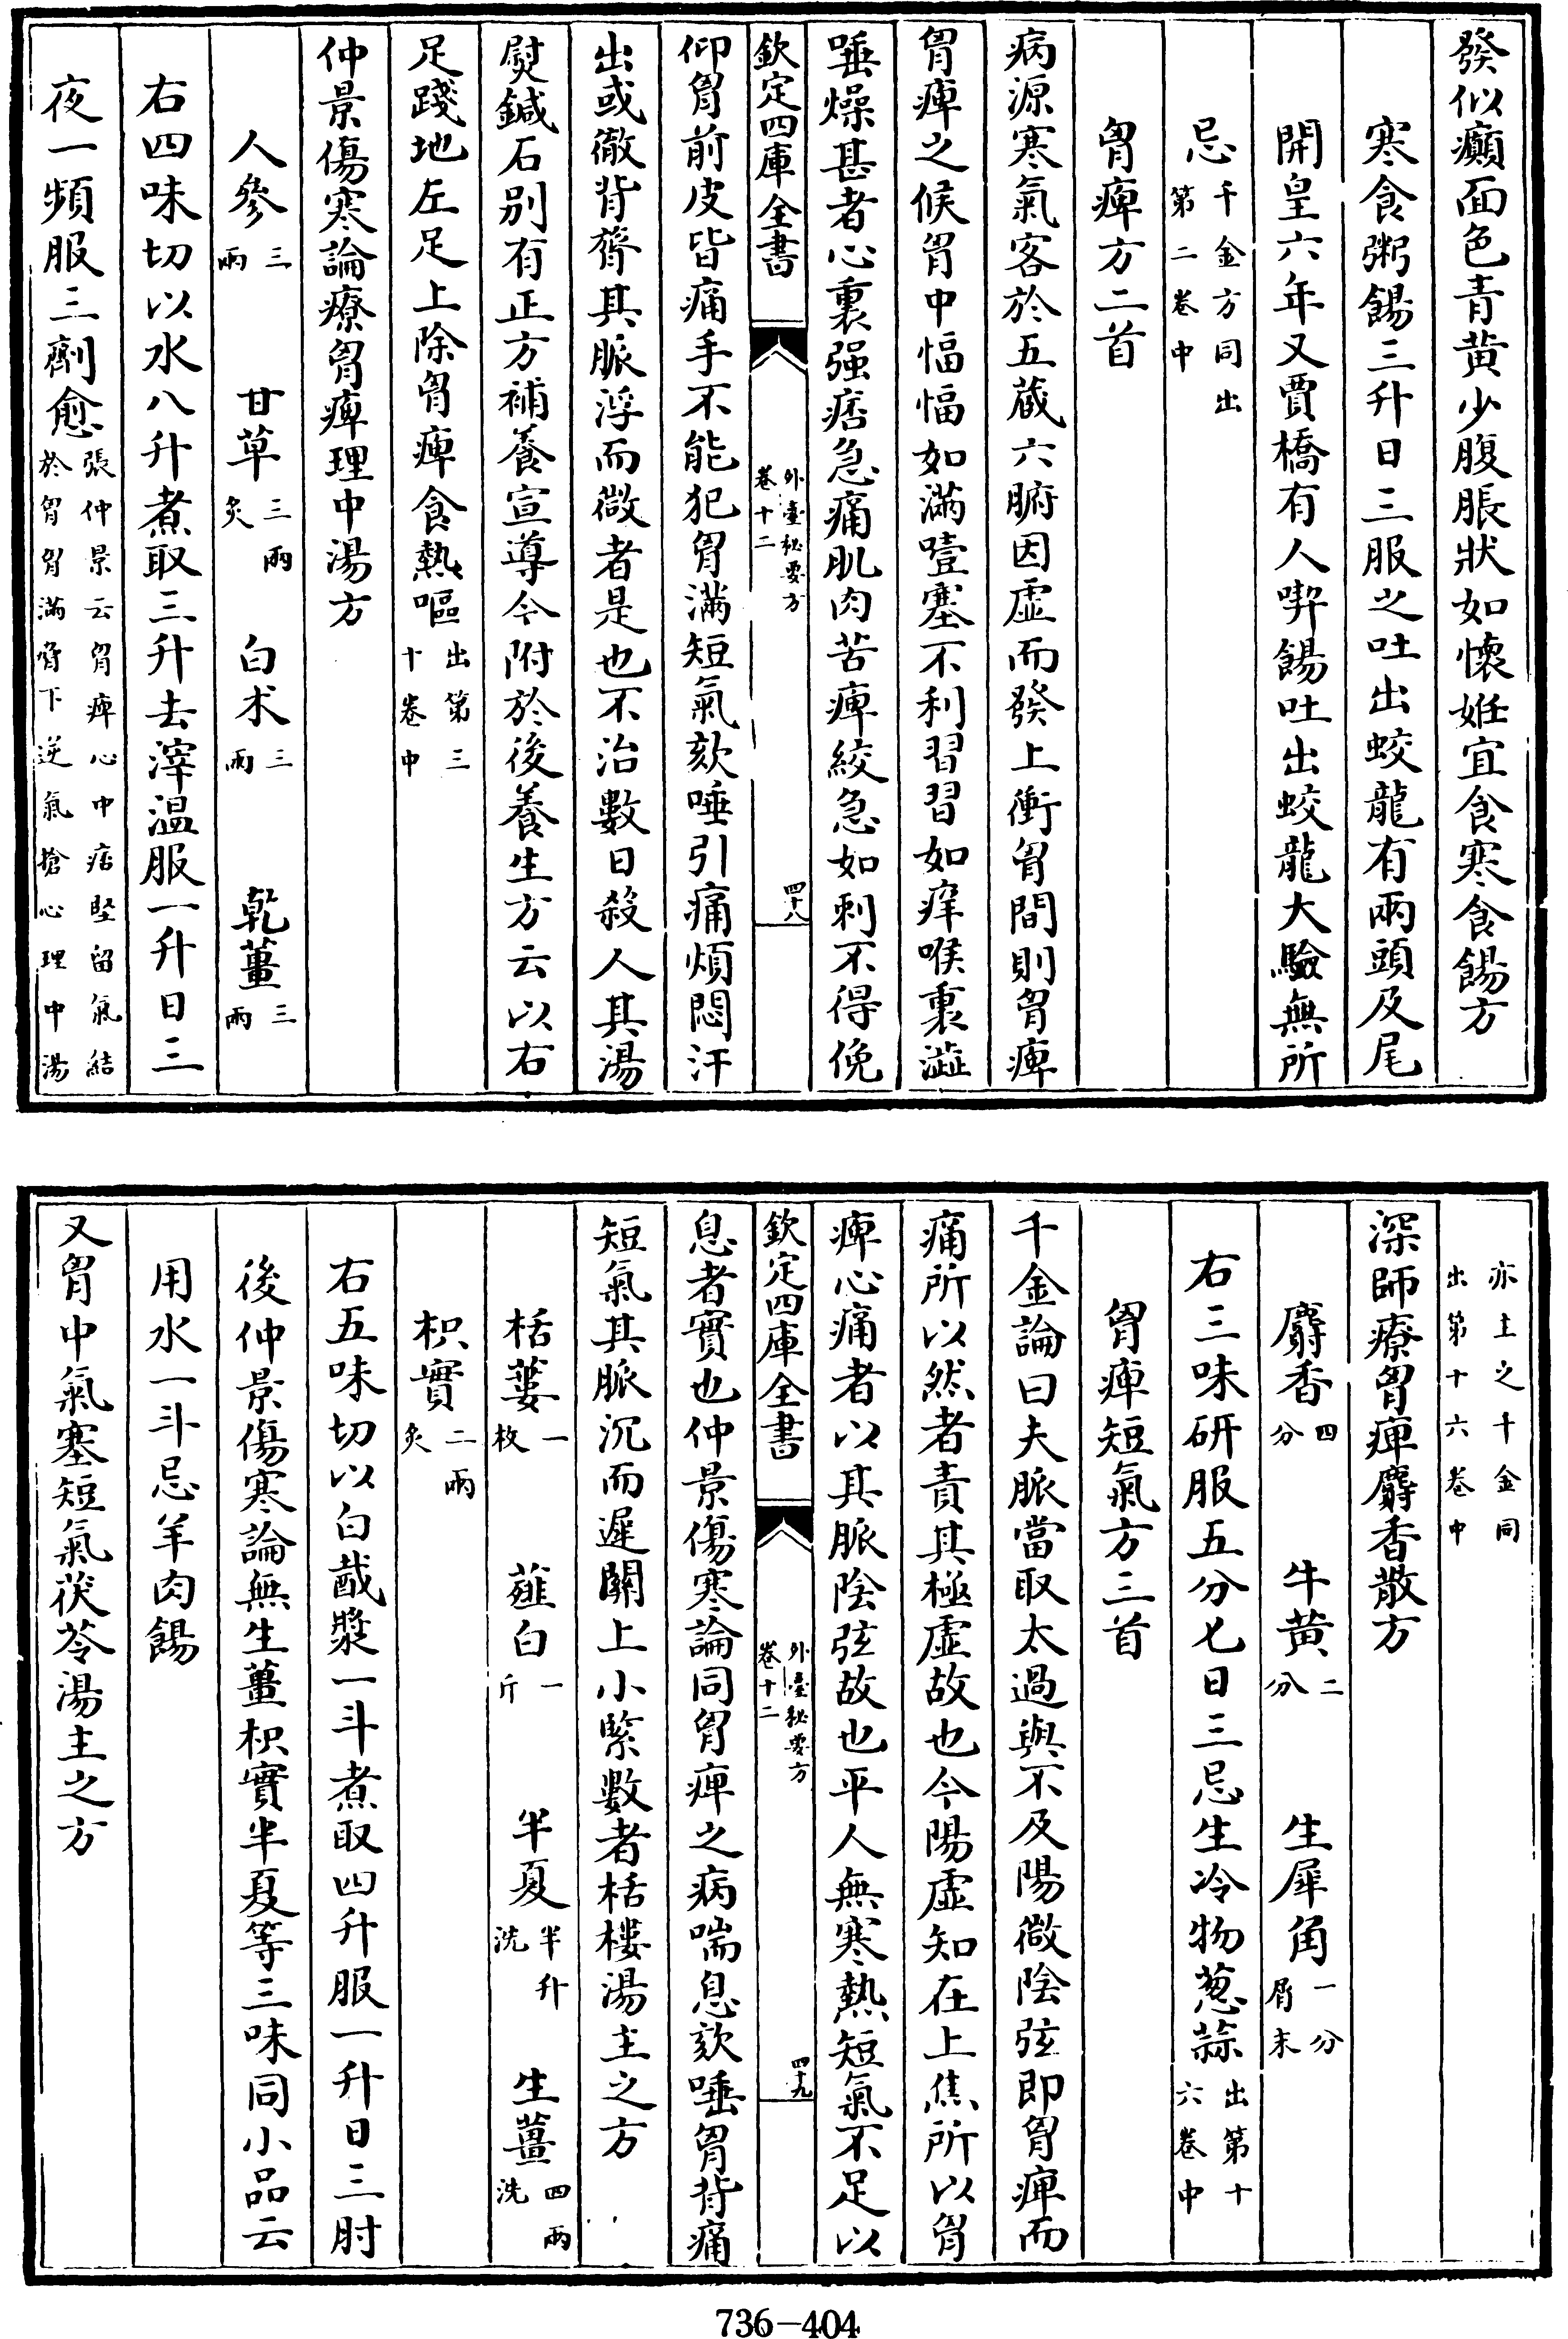 發似癲面色青黄少腹脹狀如懷姙宜食寒食餳方
寒食粥餳三升日三服之吐出蛟龍有兩頭及尾
開皇六年又賈橋有人喫餳吐出蛟龍大驗無所
忌千金方同出第二卷中
胷痺方二首
病源寒氣客於五蔵六腑因虛而發上衝胷間則胷痺
胷痺之候胷中愊愊如滿噎塞不利習習如痒喉裏澁
唾燥甚者心裏强痞急痛肌肉苦痺絞急如刺不得俛
欽定四庫全書
外臺秘要方
卷十二
四十八
仰胷前皮皆痛手不能犯胷滿短氣欬唾引痛煩悶汗
出或徹背膂其脈浮而微者是也不治數日殺人其湯
熨鍼石别有正方補養宣導今附於後養生方云以右
足踐地左足上除胷痺食熱嘔出第三十卷中
仲景傷寒論療胷痺理中湯方
人參三兩 甘草三兩炙 白术三兩 乾薑三兩
右四味切以水八升煮取三升去滓温服一升日三
夜一頻服三劑愈張仲景云胷痺心中痞堅留氣結於胷胷滿脅下逆氣搶心理中湯
亦主之千金同出第十六卷中
深師療胷痺麝香散方
麝香四分 牛黄二分 生犀角一分屑末
右三味研服五分匕日三忌生冷物葱蒜出第十六卷中
胷痺短氣方三首
千金論曰夫脈當取太過與不及陽微陰弦即胷痺而
痛所以然者責其極虛故也今陽虛知在上焦所以胷
痺心痛者以其脈陰弦故也平人無寒熱短氣不足以
欽定四庫全書
外臺秘要方
卷十二
四十九
息者實也仲景傷寒論同胷痺之病喘息欬唾胷背痛
短氣其脈沉而遲關上小緊數者栝樓湯主之方
栝蔞一枚 薤白一斤 半夏半升洗 生薑四兩洗
枳實二兩炙
右五味切以白酨漿一斗煮取四升服一升日三肘
後仲景傷寒論無生薑枳實半夏等三味同小品云
用水一斗忌羊肉餳
又胷中氣塞短氣茯苓湯主之方
736-404